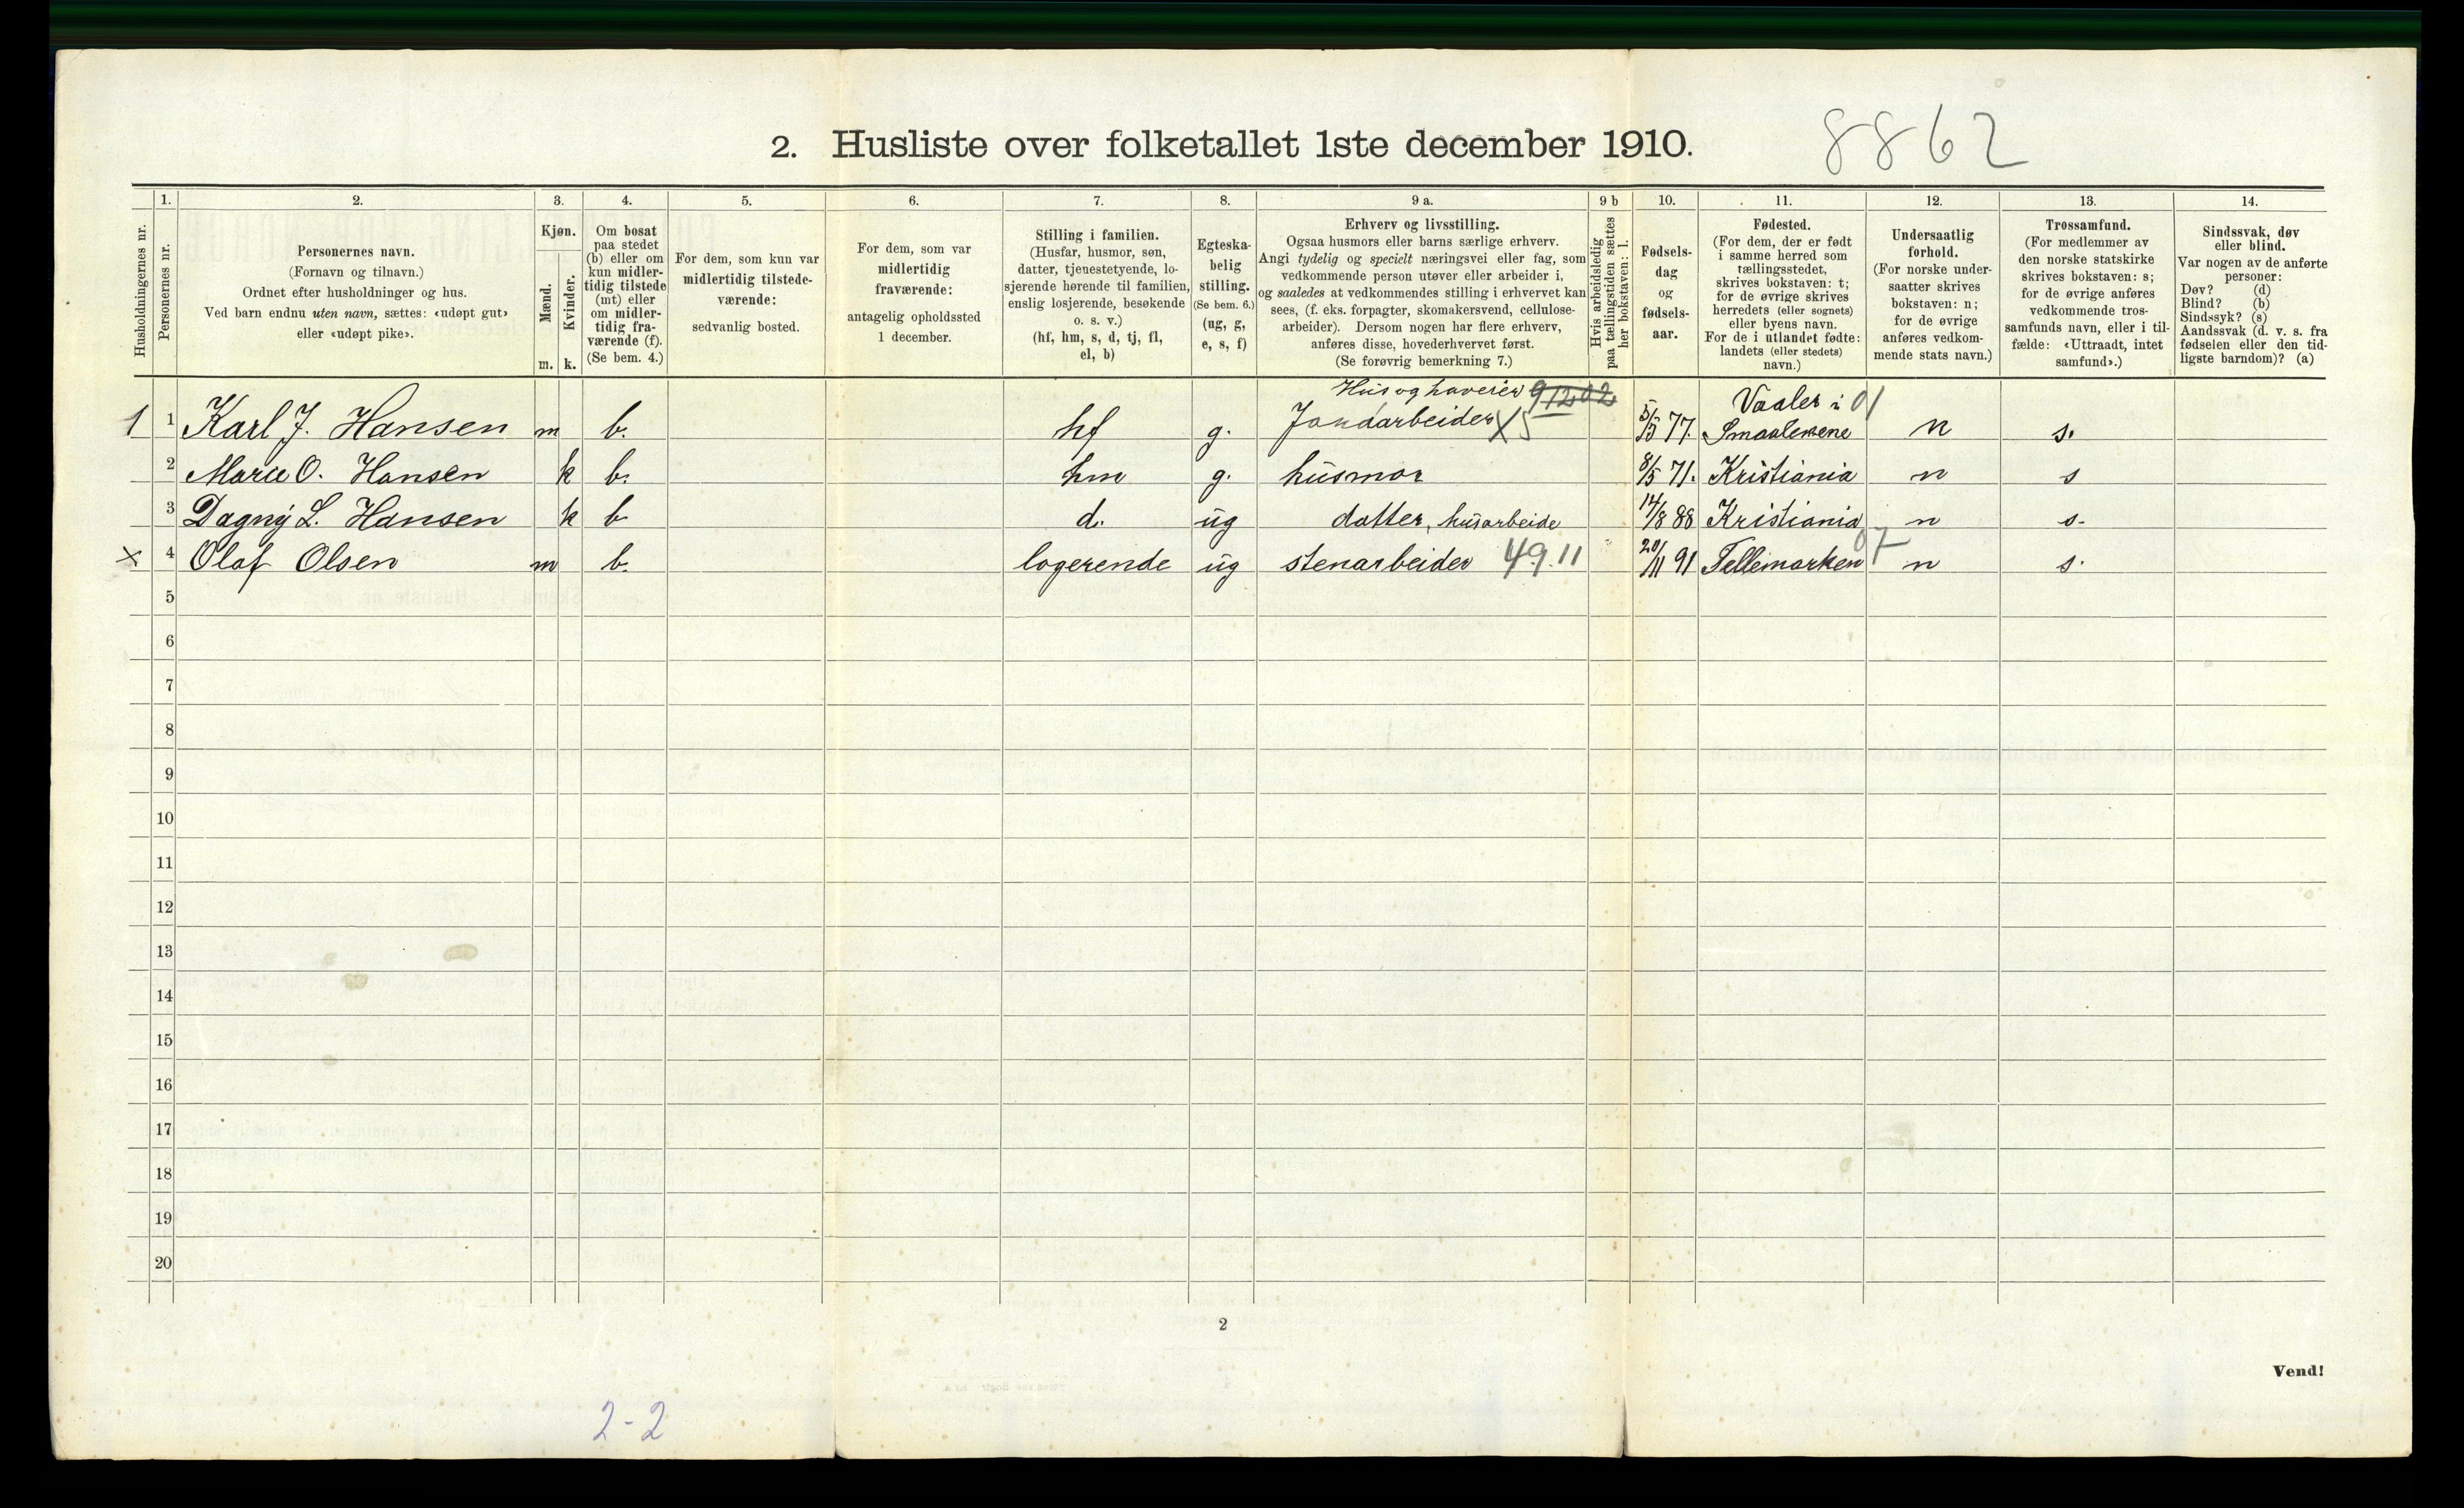 8862
2. Husliste over folketallet 1ste december 1910.
Husholdningernes nr.
1.
Personernes nr.
2.
Personernes navn.
(Fornavn og tilnavn.)
Ordnet efter husholdninger og hus.
Ved barn endnu uten navn, sættes: «udøpt gut»
eller «udøpt pike».
3.
Kjøn.
Mænd.
Kvinder.
m. k.
4.
Om bosat
paa stedet
(b) eller om
kun midler-
tidig tilstede
(mt) eller
om midler-
tidig fra-
værende (f).
(Se bem. 4.)
5.
For dem, som kun var
midlertidig tilstede-
værende:
sedvanlig bosted.
6.
For dem, som var
midlertidig
fraværende:
antagelig opholdssted
1 december.
7.
Stilling i familien.
(Husfar, husmor, søn,
datter, tjenestetyende, lo-
sjerende hørende til familien,
enslig losjerende, besøkende
o. s. v.)
(hf, hm, s, d, tj, fl,
el, b)
8.
Egteska-
belig
stilling.
(Se bem. 6.)
(ug, g,
e, s, f)
9 a.
Erhverv og livsstilling.
Ogsaa husmors eller barns særlige erhverv.
Angi tydelig og specielt næringsvei eller fag, som
vedkommende person utøver eller arbeider i,
og saaledes at vedkommendes stilling i erhvervet kan
sees, (f. eks. forpagter, skomakersvend, cellulose-
arbeider). Dersom nogen har flere erhverv,
anføres disse, hovederhvervet først.
(Se forøvrig bemerkning 7.)
9 b
Hvis arbeidsledig
paa tællingstiden sættes
her bokstaven: l.
10.
Fødsels-
dag
og
fødsels-
aar.
11.
Fødested.
(For dem, der er født
i samme herred som
tællingsstedet,
skrives bokstaven: t;
for de øvrige skrives
herredets (eller sognets)
eller byens navn.
For de i utlandet fødte:
landets (eller stedets)
navn.)
12.
Undersaatlig
forhold.
(For norske under-
saatter skrives
bokstaven: n;
for de øvrige
anføres vedkom-
mende stats navn.)
13.
Trossamfund.
(For medlemmer av
den norske statskirke
skrives bokstaven: s;
for de øvrige anføres
vedkommende tros-
samfunds navn, eller i til-
fælde: «Uttraadt, intet
samfund».)
14.
Sindssvak, døv
eller blind.
Var nogen av de anførte
personer:
Døv? (d)
Blind? (b)
Sindssyk? (s)
Aandssvak (d. v. s. fra
fødselen eller den tid-
ligste barndom)? (a)
Hus og haveeier 91202 Vaaler i 01
1 1 Karl J. Hansen m b. hf g. Jordarbeider X5 5/5 77. Smaalenene n s.
2 Marie O. Hansen k b. hm g. husmor 8/5 71. Kristiania n s
3 Dagny L. Hansen k b d. ug datter, husarbeide 14/8 88 Kristiania n s.
x 4 Olaf Olsen m b. logerende ug stenarbeider 49.11 20/11 91 Tellemarken 07 n s.
5
6
7
8
9
10
11
12
13
14
15
16
17
18
19
20
2
Vend!
2-2